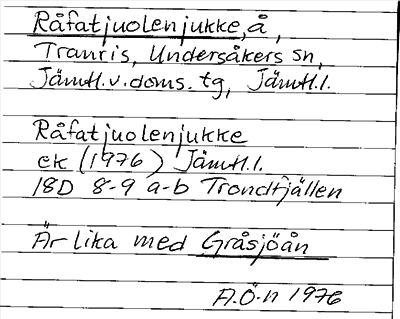 Råfatjuolenjukke, å,
Tranris, Undersåkers sn,
Jämtl.v.doms.tg, Jämtl.l.
Råfatjuolenjukke
ek (1976) Jämtl.l.
18D 8-9 a-b Trondfjällen
Är lika med Gråsjöån
A.Ö-n 1976